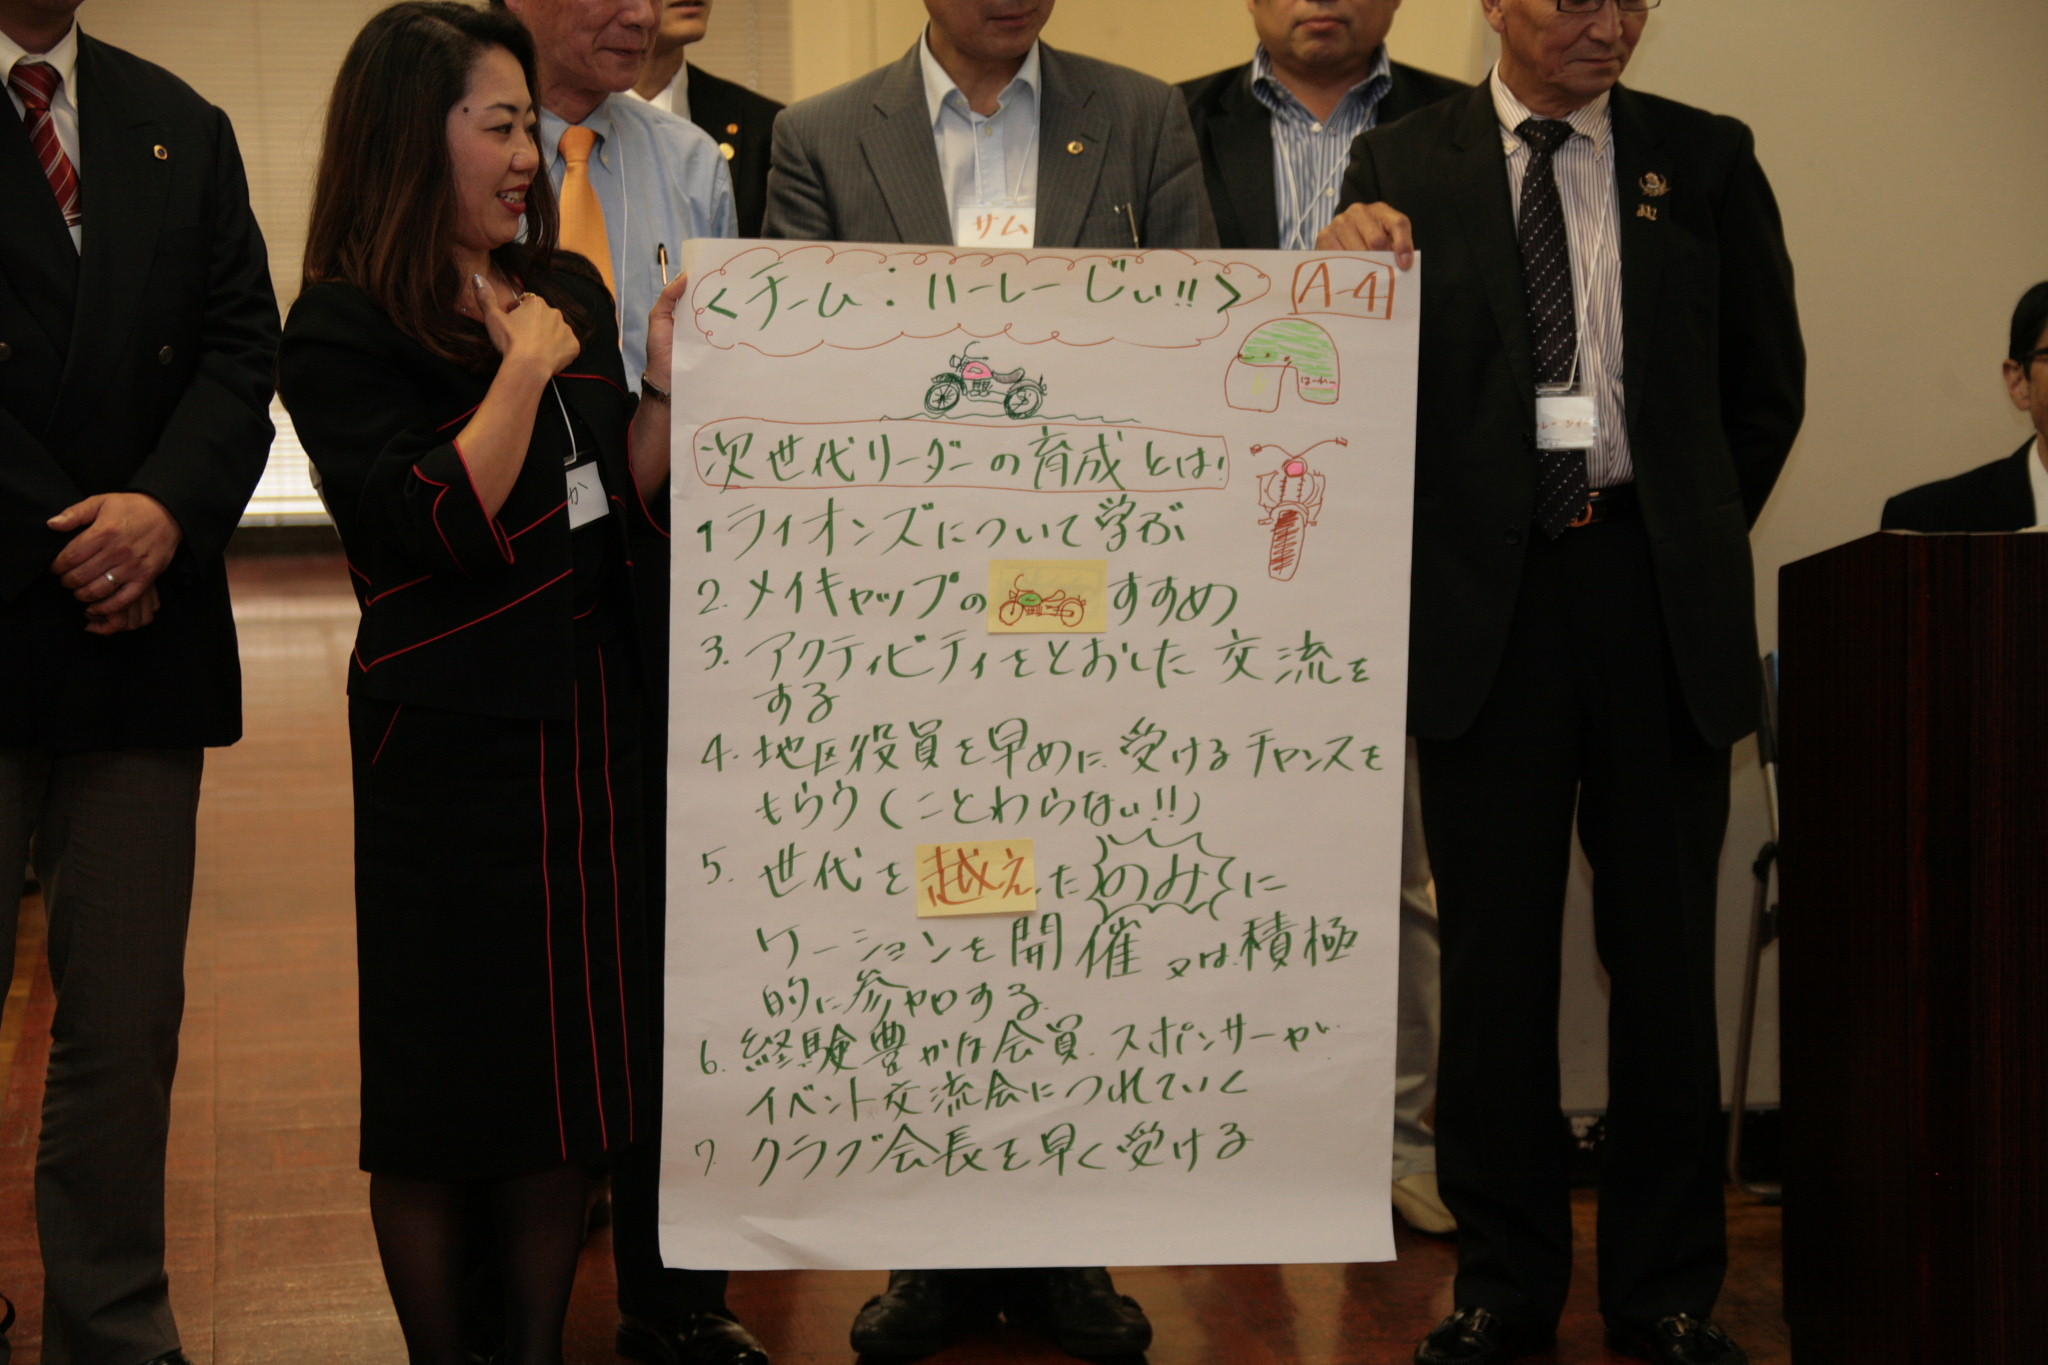 サム
か
<チーム:ハーレーじぃ!!>
A-4
はーれー
次世代リーダーの育成とは!
1 ライオンズについて学ぶ
2. メイキャップのすすめ
3. アクティビティをとおした交流を
する
4. 地区役員を早めに受けるチャンスを
もらう(ことわらない!!)
5. 世代を越えたのみに
ケーションを開催又は積極
的に参加する
6. 経験豊かな会員、スポンサーが
イベント交流会につれていく
7. クラブ会長を早く受ける